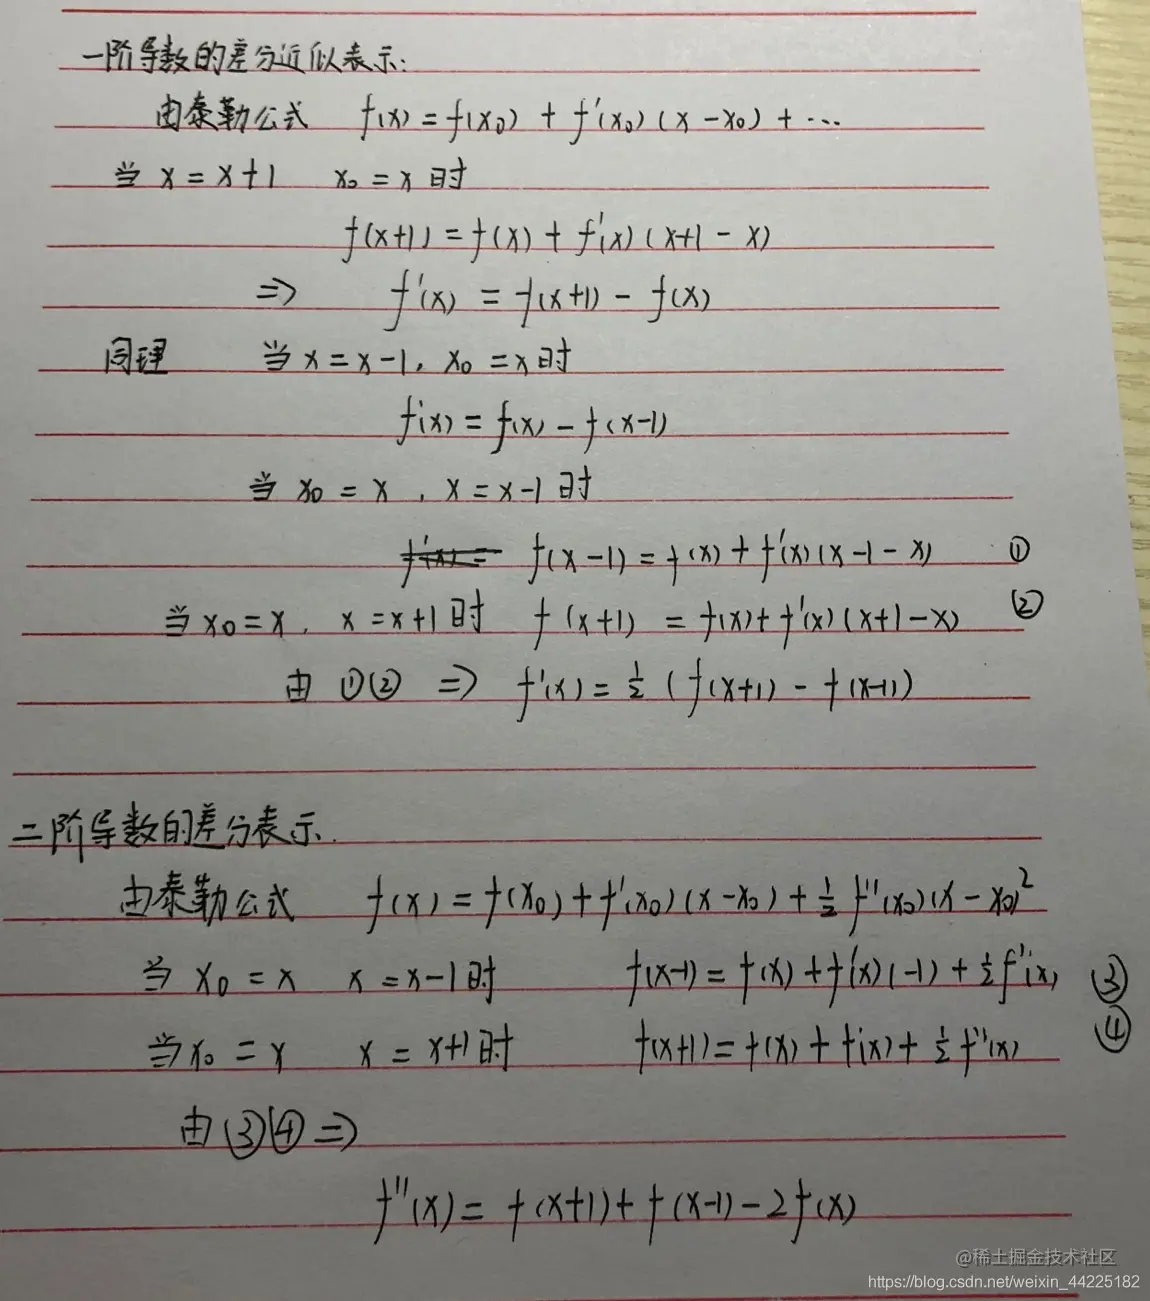 一阶导数的差分近似表示:
由泰勒公式 f(x) = f(x₀) + f'(x₀)(x-x₀) + ...
当 x = x+1 x₀ = x 时
f(x+1) = f(x) + f'(x)(x+1-x)
⇒ f'(x) = f(x+1) - f(x)
同理 当 x = x-1, x₀ = x 时
f'(x) = f(x) - f(x-1)
当 x₀ = x , x = x-1 时
f'(x) = f(x-1) = f(x) + f'(x)(x-1-x) ①
当 x₀ = x, x = x+1 时 f(x+1) = f(x) + f'(x)(x+1-x) ②
由 ①② ⇒ f'(x) = ½ (f(x+1) - f(x-1))
二阶导数的差分表示.
由泰勒公式 f(x) = f(x₀) + f'(x₀)(x-x₀) + ½ f''(x₀)(x-x₀)²
当 x₀ = x x = x-1 时 f(x-1) = f(x) + f'(x)(-1) + ½ f''(x) ③
当 x₀ = x x = x+1 时 f(x+1) = f(x) + f'(x) + ½ f''(x) ④
由 ③④ ⇒
f''(x) = f(x+1) + f(x-1) - 2f(x)
@稀土掘金技术社区
https://blog.csdn.net/weixin_44225182